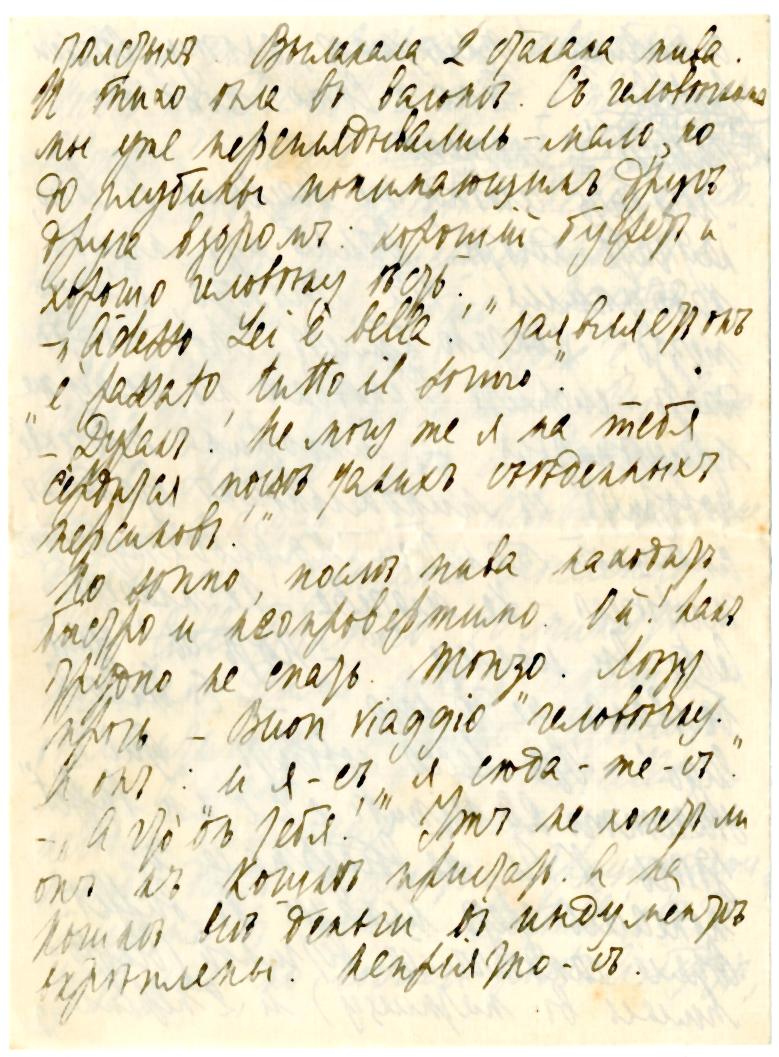 толстыхъ. Вылакала 2 стакана пива.
И тихо сѣла въ вагонъ. Съ человѣчкомъ
мы уже переглядывались – мало, но
до глубины понимающимъ другъ
друга взоромъ: хорошiй буфетъ и
хорошо человѣку ѣсть.
– „Adesso Lei è bella!" заявляетъ онъ
„è passato tutto il sonno".
"– Дуракъ! Не могу же я на тебя
сердиться послѣ такихъ съѣденныхъ
персиковъ!"
Но sonno, послѣ пива находитъ
быстро и неопровержимо. Ой! какъ
трудно не спать. Monzo. Лѣзу
прочь – Buon viaggio" человѣчку.
И онъ: и я-съ, я сюда-же-съ"
– „А чтобъ тебя!" Ужъ не хочетъ ли
онъ къ Кошкѣ пристать. А на
Кошкѣ всѣ деньги въ индументъ
укрѣплены. Непрiятно-съ.